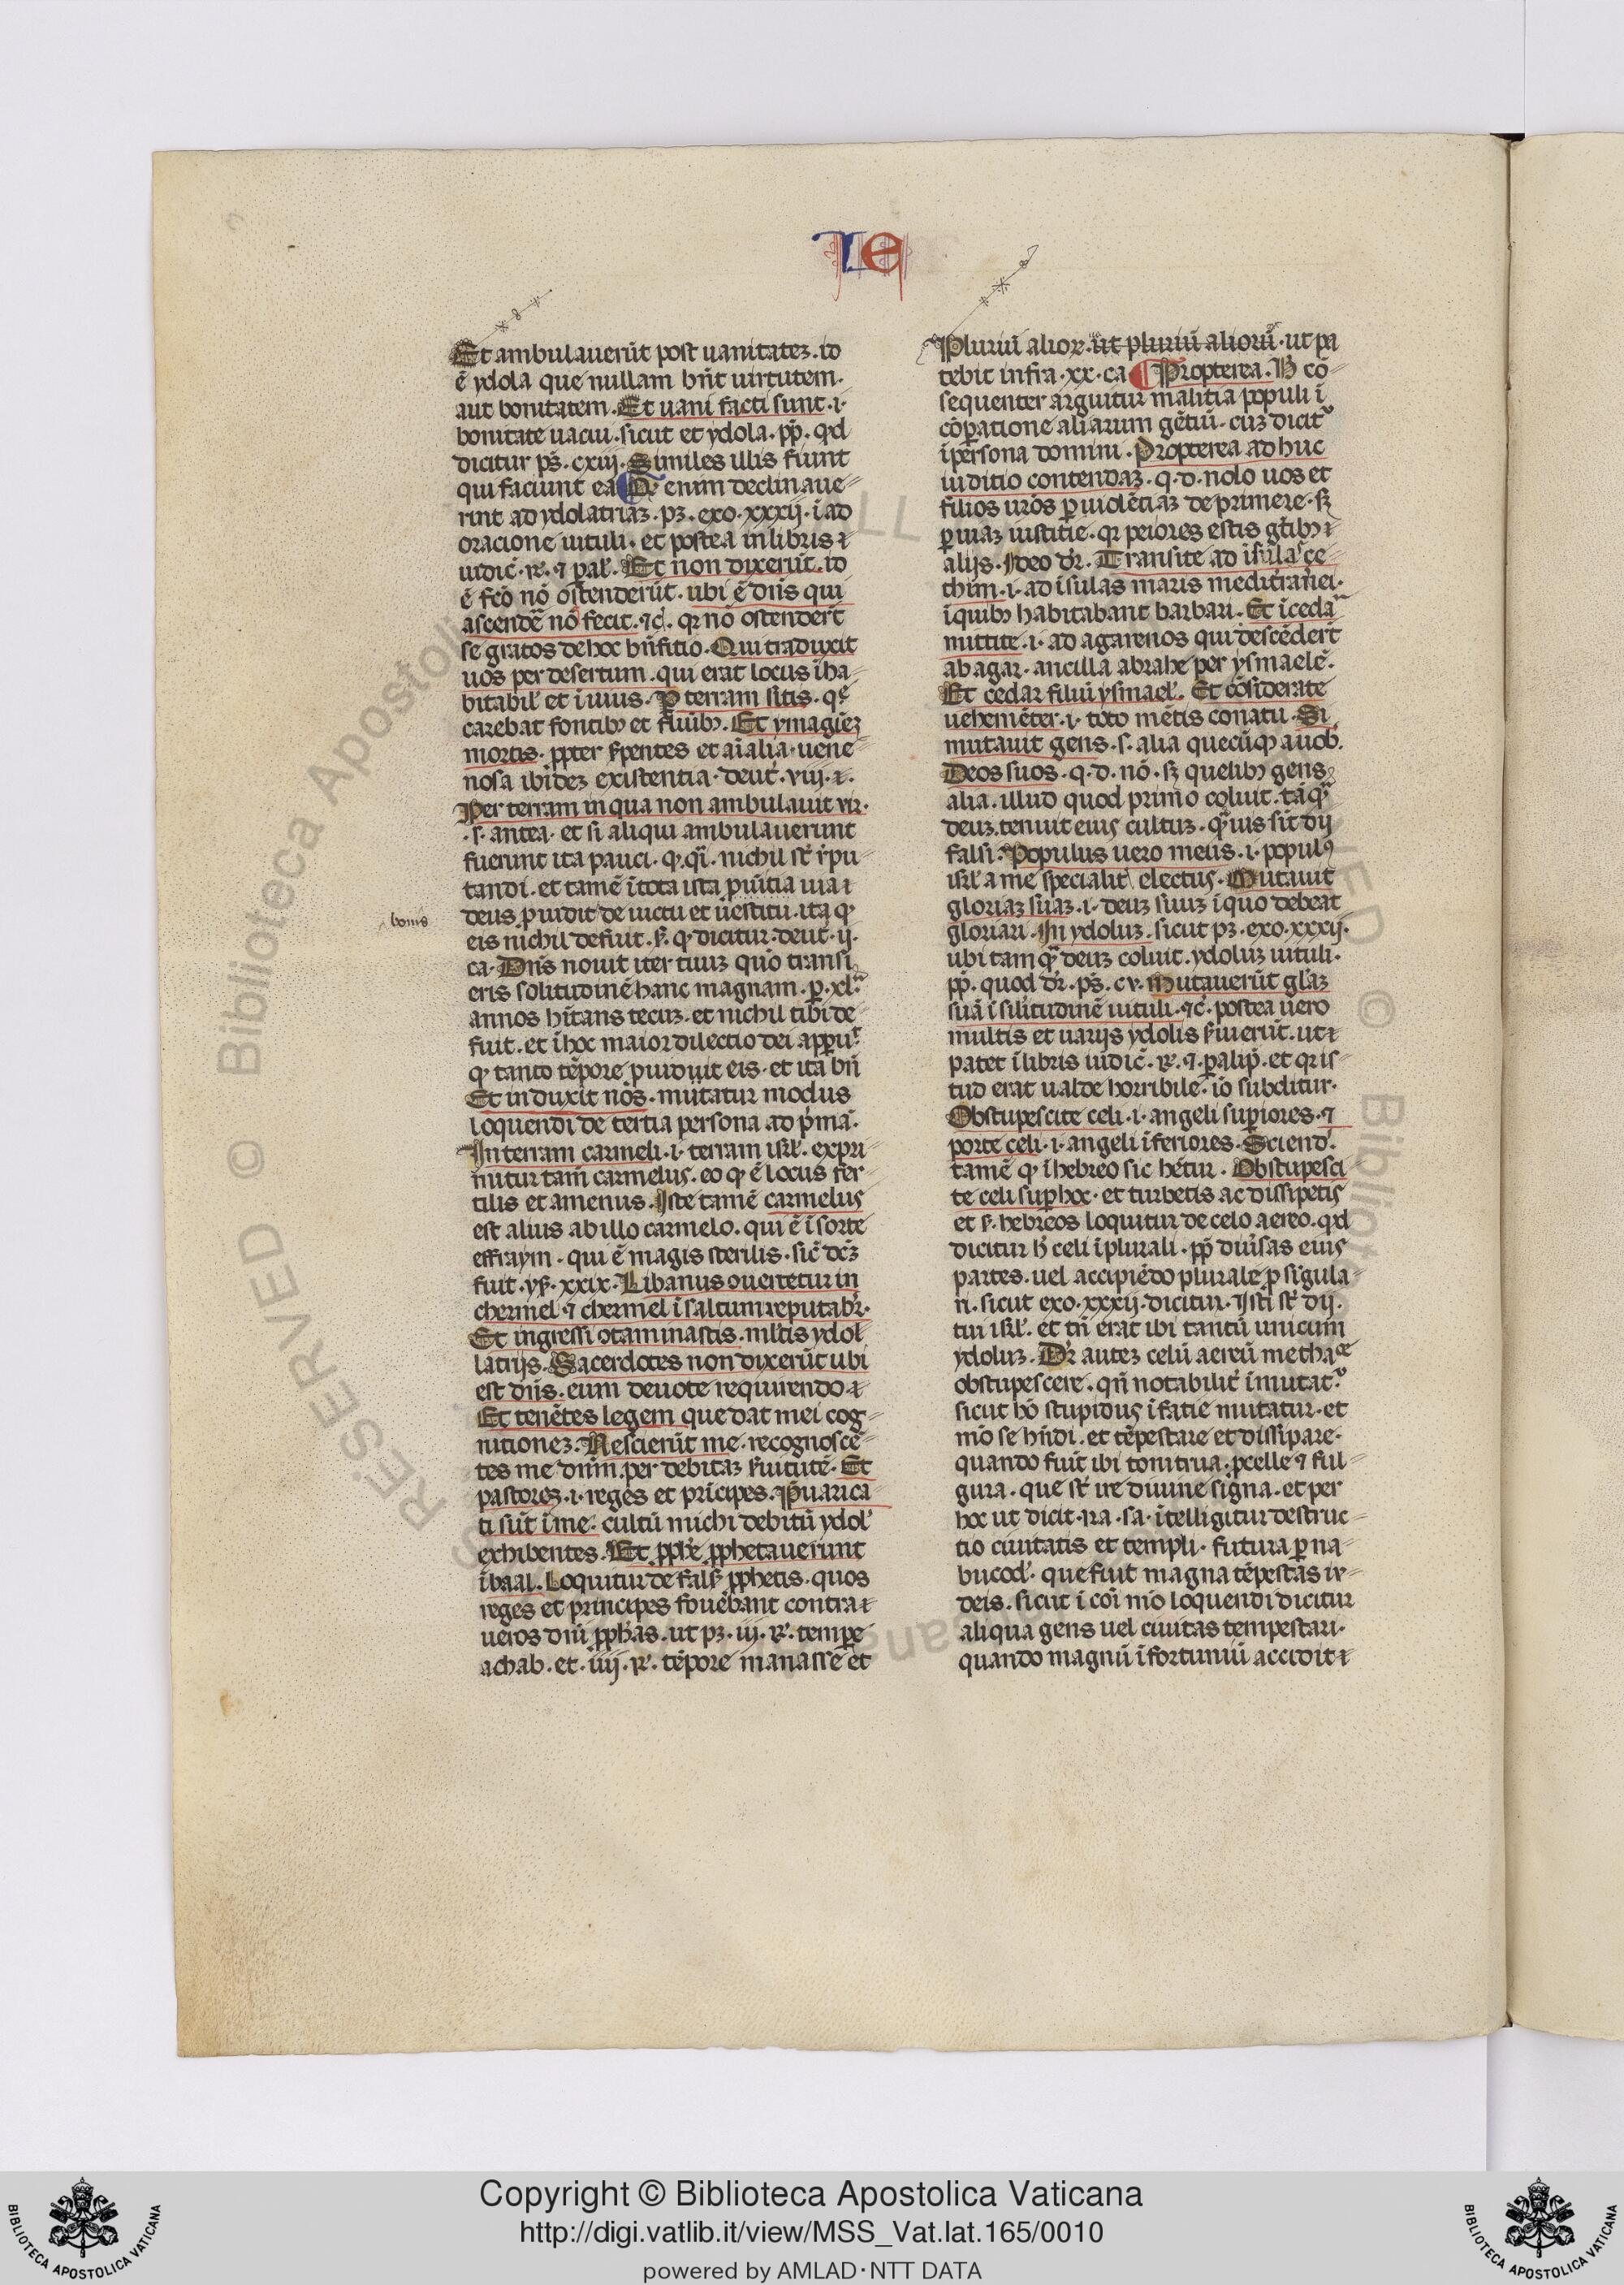 Ie
Et ambulauerūt post uanitatez. id
ē ydola que nullam hn̄t uirtutem.
aut bonitatem. Et uani facti sunt .i.
bonitate uacui. sicut et ydola. pp̄. qd
dicitur ps̄. cxiij. Similes illis fiunt
qui faciunt ea Qꝙ enim declinaue
rint ad ydolatriaz. pz. exo. xxxij. ī ad
oracione uituli. et postea in libris ⁊
iudic̄. R̄. ⁊ pal̄. Et non dixerūt. id
ē fc̄o nō ostenderūt. ubi ē dn̄s qui
ascendē nō fecit. ⁊c̄. qꝛ nō ostenderūt
se gratos de hoc bn̄fitio. Qui traduxit
uos per desertum. qui erat locus īha
bitabil̄ et īuius. P terram sitis. qe
carebat fontibꝫ et fluuibꝫ. Et ymagiēz
mortis. ꝓpter ẜpentes et aīalia uene
nosa ibidez existentia. deut̄. viij. ⁊.
Per terram in qua non ambulauit vir.
.s. antea. et si aliqui ambulauerunt
fuerunt ita pauci. ꝙ. qī. nichil st̄ r̄pu
tandi. et tamē ītota ista ꝓuītia uia ⁊
deus ꝓuidit de uictu et uestitu. ita ꝙ
bonis
eis nichil defuit. ẜ. ꝙ dicitur. deut̄. ij.
ca. Dn̄s nouit iter tuuz quō transi
eris solitudinē hanc magnam. ꝑ. xl.
annos hītans tecuz. et nichil tibi de
fuit. et īhoc maior dilectio dei apꝑuit
ꝙ tanto tēpore ꝓuiduit eis. et ita bn̄
Et induxit nōs. mūtatur modus
loquendi de tertia persona ad pͥmā.
In terram carmeli .i. terram isrl̄. expri
mitur tam̄ carmelus. eo ꝙ ē locus fer
tilis et amenus. Iste tamē carmelus
est alius ab illo carmelo. qui ē ī sorte
effraym. qui ē magis sterilis. sic̄ dc̄z
fuit. ys̄. xxix. Libanus ꝯuertetur in
chermel ⁊ chermel ī saltum reputabr̄.
Et ingressi ꝯtaminastis. ml̄tis ydol
latrijs. Sacerdotes non dixerūt ubi
est dn̄s. eum deuote requirendo ⁊
Et tenētes legem que dat mei cog
nitionez. Nescierūt me. recognoscē
tes me dn̄m. per debitaz ẜuitutē. Et
pastorez .i. reges et prīcipes. Pͣuarica
ti sūt ī me. cultū michi debitū ydol̄
exhibentes. Et ꝓph̄e ꝓphetauerunt
ī baal. Loquitur de fals̄ ꝓphetis. quos
reges et principes fouēbant contra ⁊
ueros dn̄i ꝓph̄as. ut pz. iij. R̄. tempe
achab. et. iiij. R̄. tēpore manasse et
Pluriū alioꝝ. ut pluriū aliorū. ut pa
tebit infra. xx. ca Propterea. H cō
sequenter arguitur malitia populi ī
cōꝑatione aliarum gētiū. cuz dicitᷣ
īpersona domini. Propterea ad huc
iuditio contendaz. q. d. nolo uos et
filios ur̄os ꝑ uiolētiaz de primere. sꝫ
ꝑ uiaz iustitie. qꝛ peiores estis gētibꝫ ⁊
alijs. Ideo dr̄. Transite ad īsulas ce
thim .i. ad īsulas maris medit̄ranei.
īquibꝫ habitabant barbari. Et īcedar
mittite .i. ad agarenos qui descēderūt
ab agar. ancilla abrahe per ysmaelē.
Et cedar filiū ysmael̄. Et cōsiderate
uehemēter .i. toto mētis conatu. Si
mutauit gens. s. alia quecūqꝫ a uob̄.
Deos suos. q. d. nō. sꝫ quelibꝫ gens
alia. illud quod primo coluit. tāqͣ
deuz. tenuit eius cultuz. qͣuis sīt dij
falsi. Populus uero meus .i. populꝰ
isrl̄ a me specialit̄ electus. Mutauit
gloriaz suaz .i. deuz suuz īquo debeat
gloriari. In ydoluz. sicut pz. exo. xxxij.
ubi tam qͣ deuz coluit. ydoluz uituli.
pp̄. quod dr̄. ps̄. cv. Mutauerūt gl̄az
suā ī silitudinē uituli. ⁊c̄. postea uero
multis et uarijs ydolis ẜuierūt. ut ⁊
patet īlibris iudic̄. R̄. ⁊. ꝑalip̄. et qꝛ is
tud erat ualde horribile. iō subditur.
Obstupescite celi .i. angeli suꝑiores. ⁊
porte celi .i. angeli īferiores. Sciend̄.
tamē ꝙ ī hebreo sic hētur. Obstupesci
te celi suꝑ hoc. et turbetis ac dissipetis
et ẜ. hebreos loquitur de celo aereo. qd
dicitur h̄ celi īplurali. pp̄ diūsas eius
partes. uel accipiēdo plurale ꝓ sīgula
ri. sicut exo. xxxij. dicitur. Isti st̄ dij.
tui isrl̄. et tn̄ erat ibi tantū unicum
ydoluz. Dr̄ autez celū aereū metha ce
obstupescere. qn̄ notabilit̄ īmutatᷣ
sicut hō stupidus ī fatie mutatur. et
mō se hn̄di. et tēpestare et dissipare.
quando fuīt ibi tonitrua. ꝓcelle ⁊ ful
gura. que st̄ ire diuine signa. et per
hoc ut dicit. ra. sa. ītelligitur destruc
tio ciuitatis et templi. futura ꝑ na
bucod̄. que fuit magna tēpestas iu
deis. sicut ī coī mō loquendi dicitur
aliqua gens uel ciuitas tempestari.
quando magnū īfortuniū accidit ⁊
Copyright © Biblioteca Apostolica Vaticana
http://digi.vatlib.it/view/MSS_Vat.lat.165/0010
powered by AMLAD·NTT DATA
BIBLIOTECA APOSTOLICA VATICANA
BIBLIOTECA APOSTOLICA VATICANA